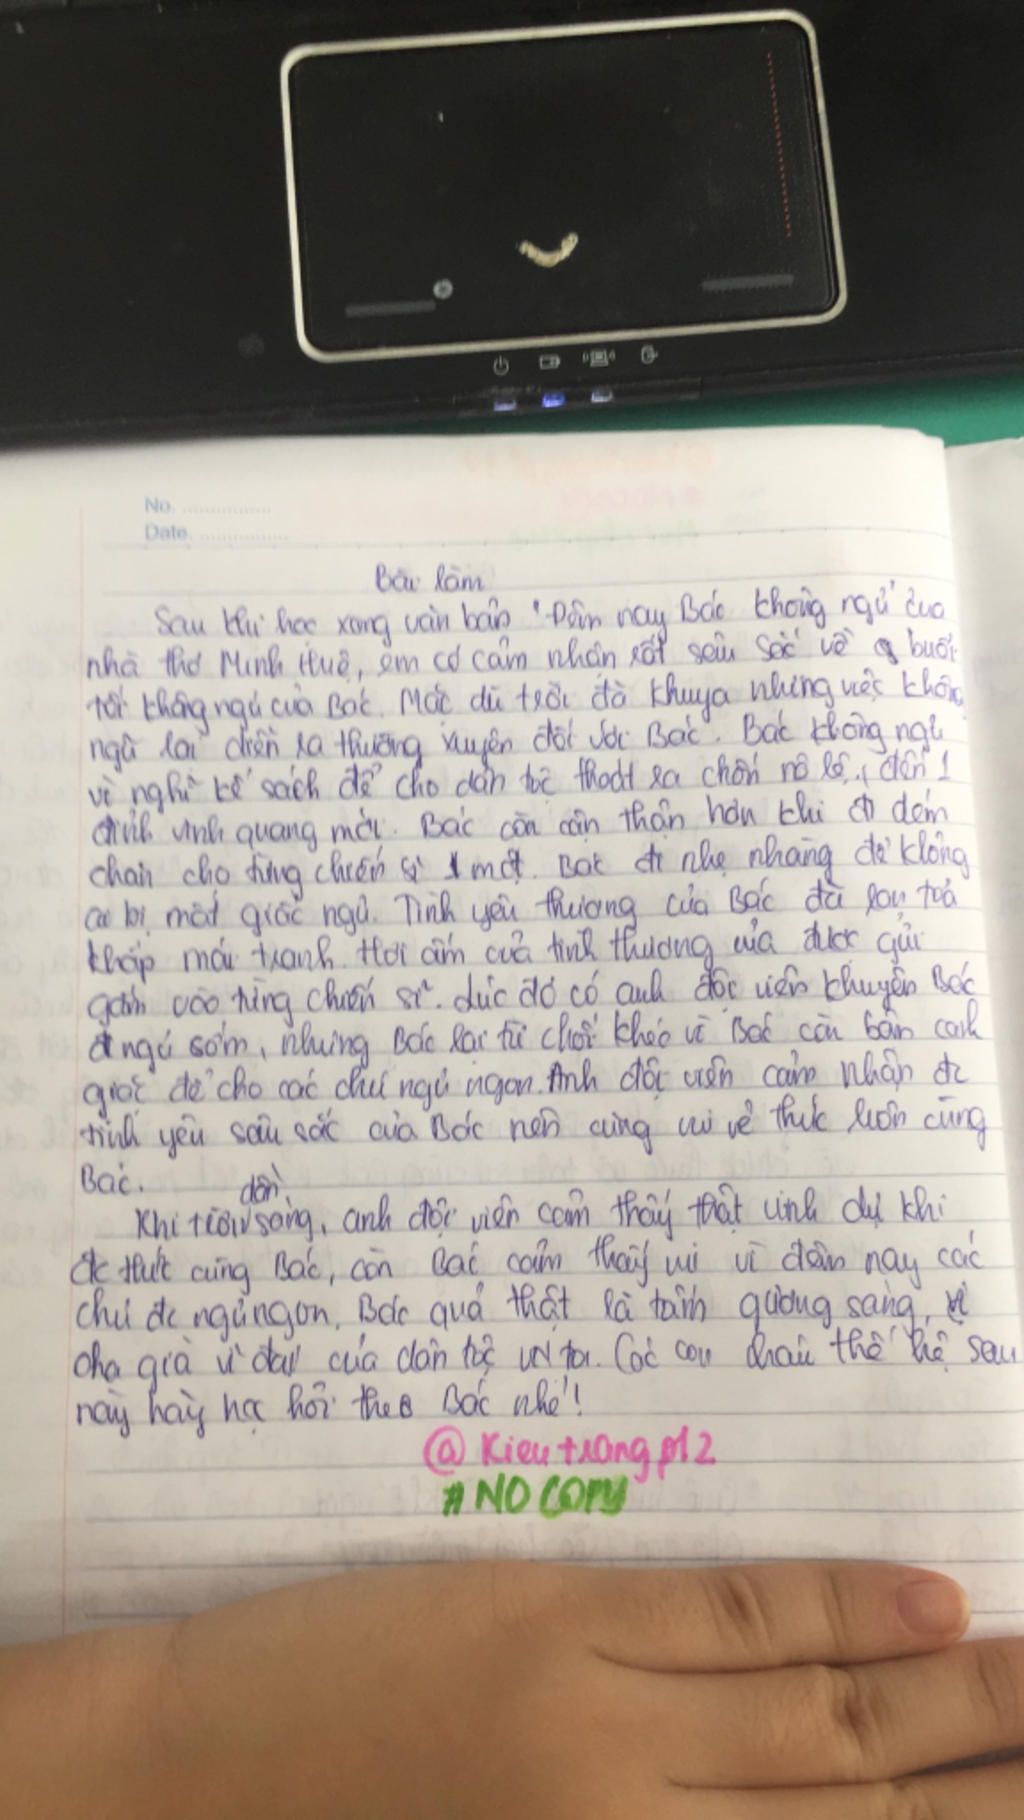 No. ................
Date. ................
Bài làm
Sau khi học xong văn bản "Đêm nay Bác không ngủ" của
nhà thơ Minh Huệ, em có cảm nhận rất sâu sắc về buổi
tối không ngủ của Bác. Mặc dù trời đã khuya nhưng việc không
ngủ lại diễn ra thường xuyên đối với Bác. Bác không ngủ
vì nghĩ kế sách để cho dân tộc thoát ra chốn nô lệ, đến 1
đỉnh vinh quang mới. Bác còn cẩn thận hơn khi đi dém
chăn cho từng chiến sĩ 1 một. Bác đi nhẹ nhàng để không
ai bị mất giấc ngủ. Tình yêu thương của Bác đã lan toả
khắp mái tranh. Hơi ấm của tình thương của được gửi
gắm vào từng chiến sĩ. Lúc đó có anh đội viên khuyên Bác
đi ngủ sớm, nhưng Bác lại từ chối khéo vì Bác còn bận canh
giấc để cho các chú ngủ ngon. Anh đội viên cảm nhận đc
tình yêu sâu sắc của Bác nên cũng vui vẻ thức luôn cùng
Bác.
dần,
Khi trời sáng, anh đội viên cảm thấy thật vinh dự khi
đc thức cùng Bác, còn Bác cảm thấy vui vì đêm nay các
chú đc ngủ ngon. Bác quả thật là tấm gương sáng, vị
cha già vĩ đại của dân tộc VN ta. Các con cháu thế hệ sau
này hãy học hỏi theo Bác nhé!
@ Kieutrangpt2
# NO COPY